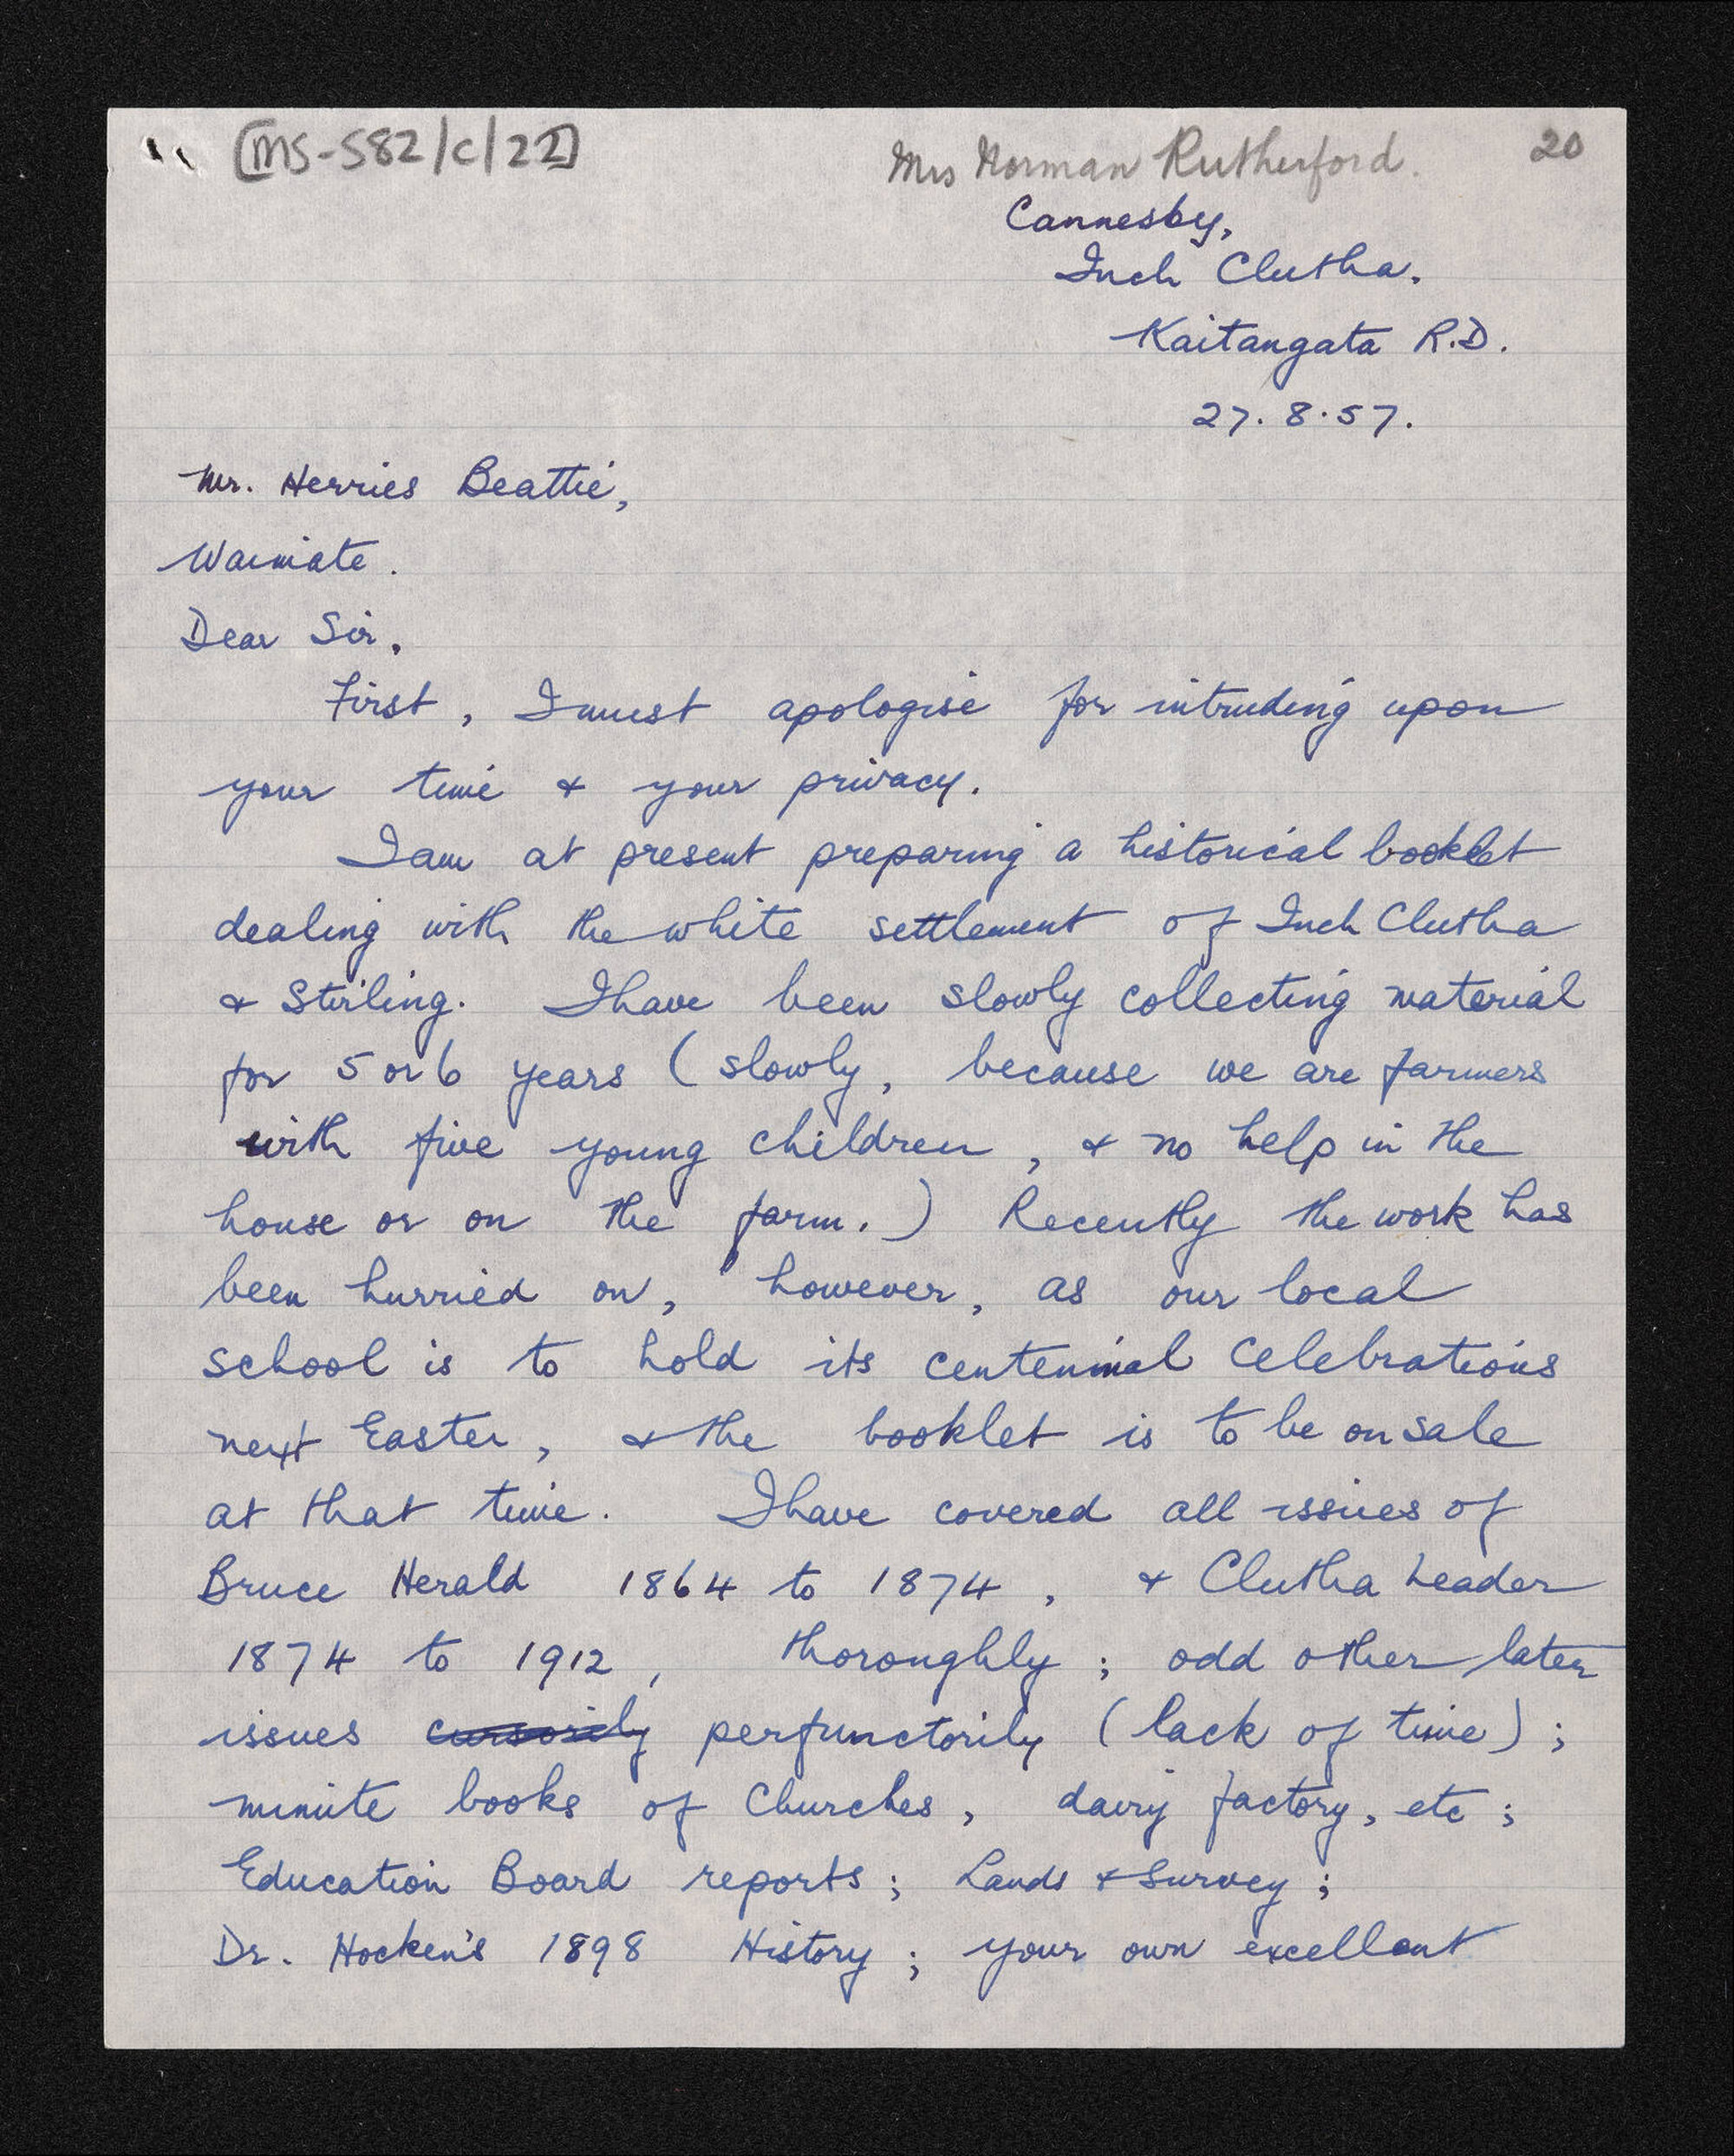 [MS-582/C/22]
Mrs Norman Rutherford. 20
Cannesby,
Inch Clutha.
Kaitangata R.D.
27.8.57.
Mr. Herries Beattie,
Waimate.
Dear Sir,
First, I must apologise for intruding upon
your time & your privacy.
I am at present preparing a historical booklet
dealing with the white settlement of Inch Clutha
& Stirling. I have been slowly collecting material
for 5 or 6 years (slowly, because we are farmers
with five young children, & no help in the
house or on the farm.) Recently the work has
been hurried on, however, as our local
school is to hold its centennial celebrations
next Easter, & the booklet is to be on sale
at that time. I have covered all issues of
Bruce Herald 1864 to 1874, & Clutha Leader
1874 to 1912, thoroughly; odd other later
issues cursorily perfunctorily (lack of time);
minute books of Churches, dairy factory, etc;
Education Board reports; Lands & Survey;
Dr. Hocken's 1898 History; your own excellent